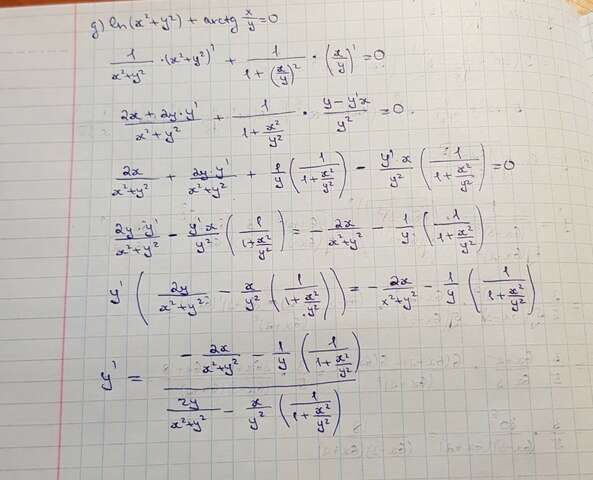 д) ln(x²+y²) + arctg x/y = 0
1/(x²+y²) · (x²+y²)' + 1/(1+(x/y)²) · (x/y)' = 0
(2x + 2y·y')/(x²+y²) + 1/(1+x²/y²) · (y − y'x)/y² = 0
2x/(x²+y²) + 2y·y'/(x²+y²) + 1/y (1/(1+x²/y²)) − y'·x/y² (1/(1+x²/y²)) = 0
2y·y'/(x²+y²) − y'·x/y² (1/(1+x²/y²)) = − 2x/(x²+y²) − 1/y (1/(1+x²/y²))
y' (2y/(x²+y²) − x/y² (1/(1+x²/y²))) = − 2x/(x²+y²) − 1/y (1/(1+x²/y²))
y' = (− 2x/(x²+y²) − 1/y (1/(1+x²/y²))) / (2y/(x²+y²) − x/y² (1/(1+x²/y²)))